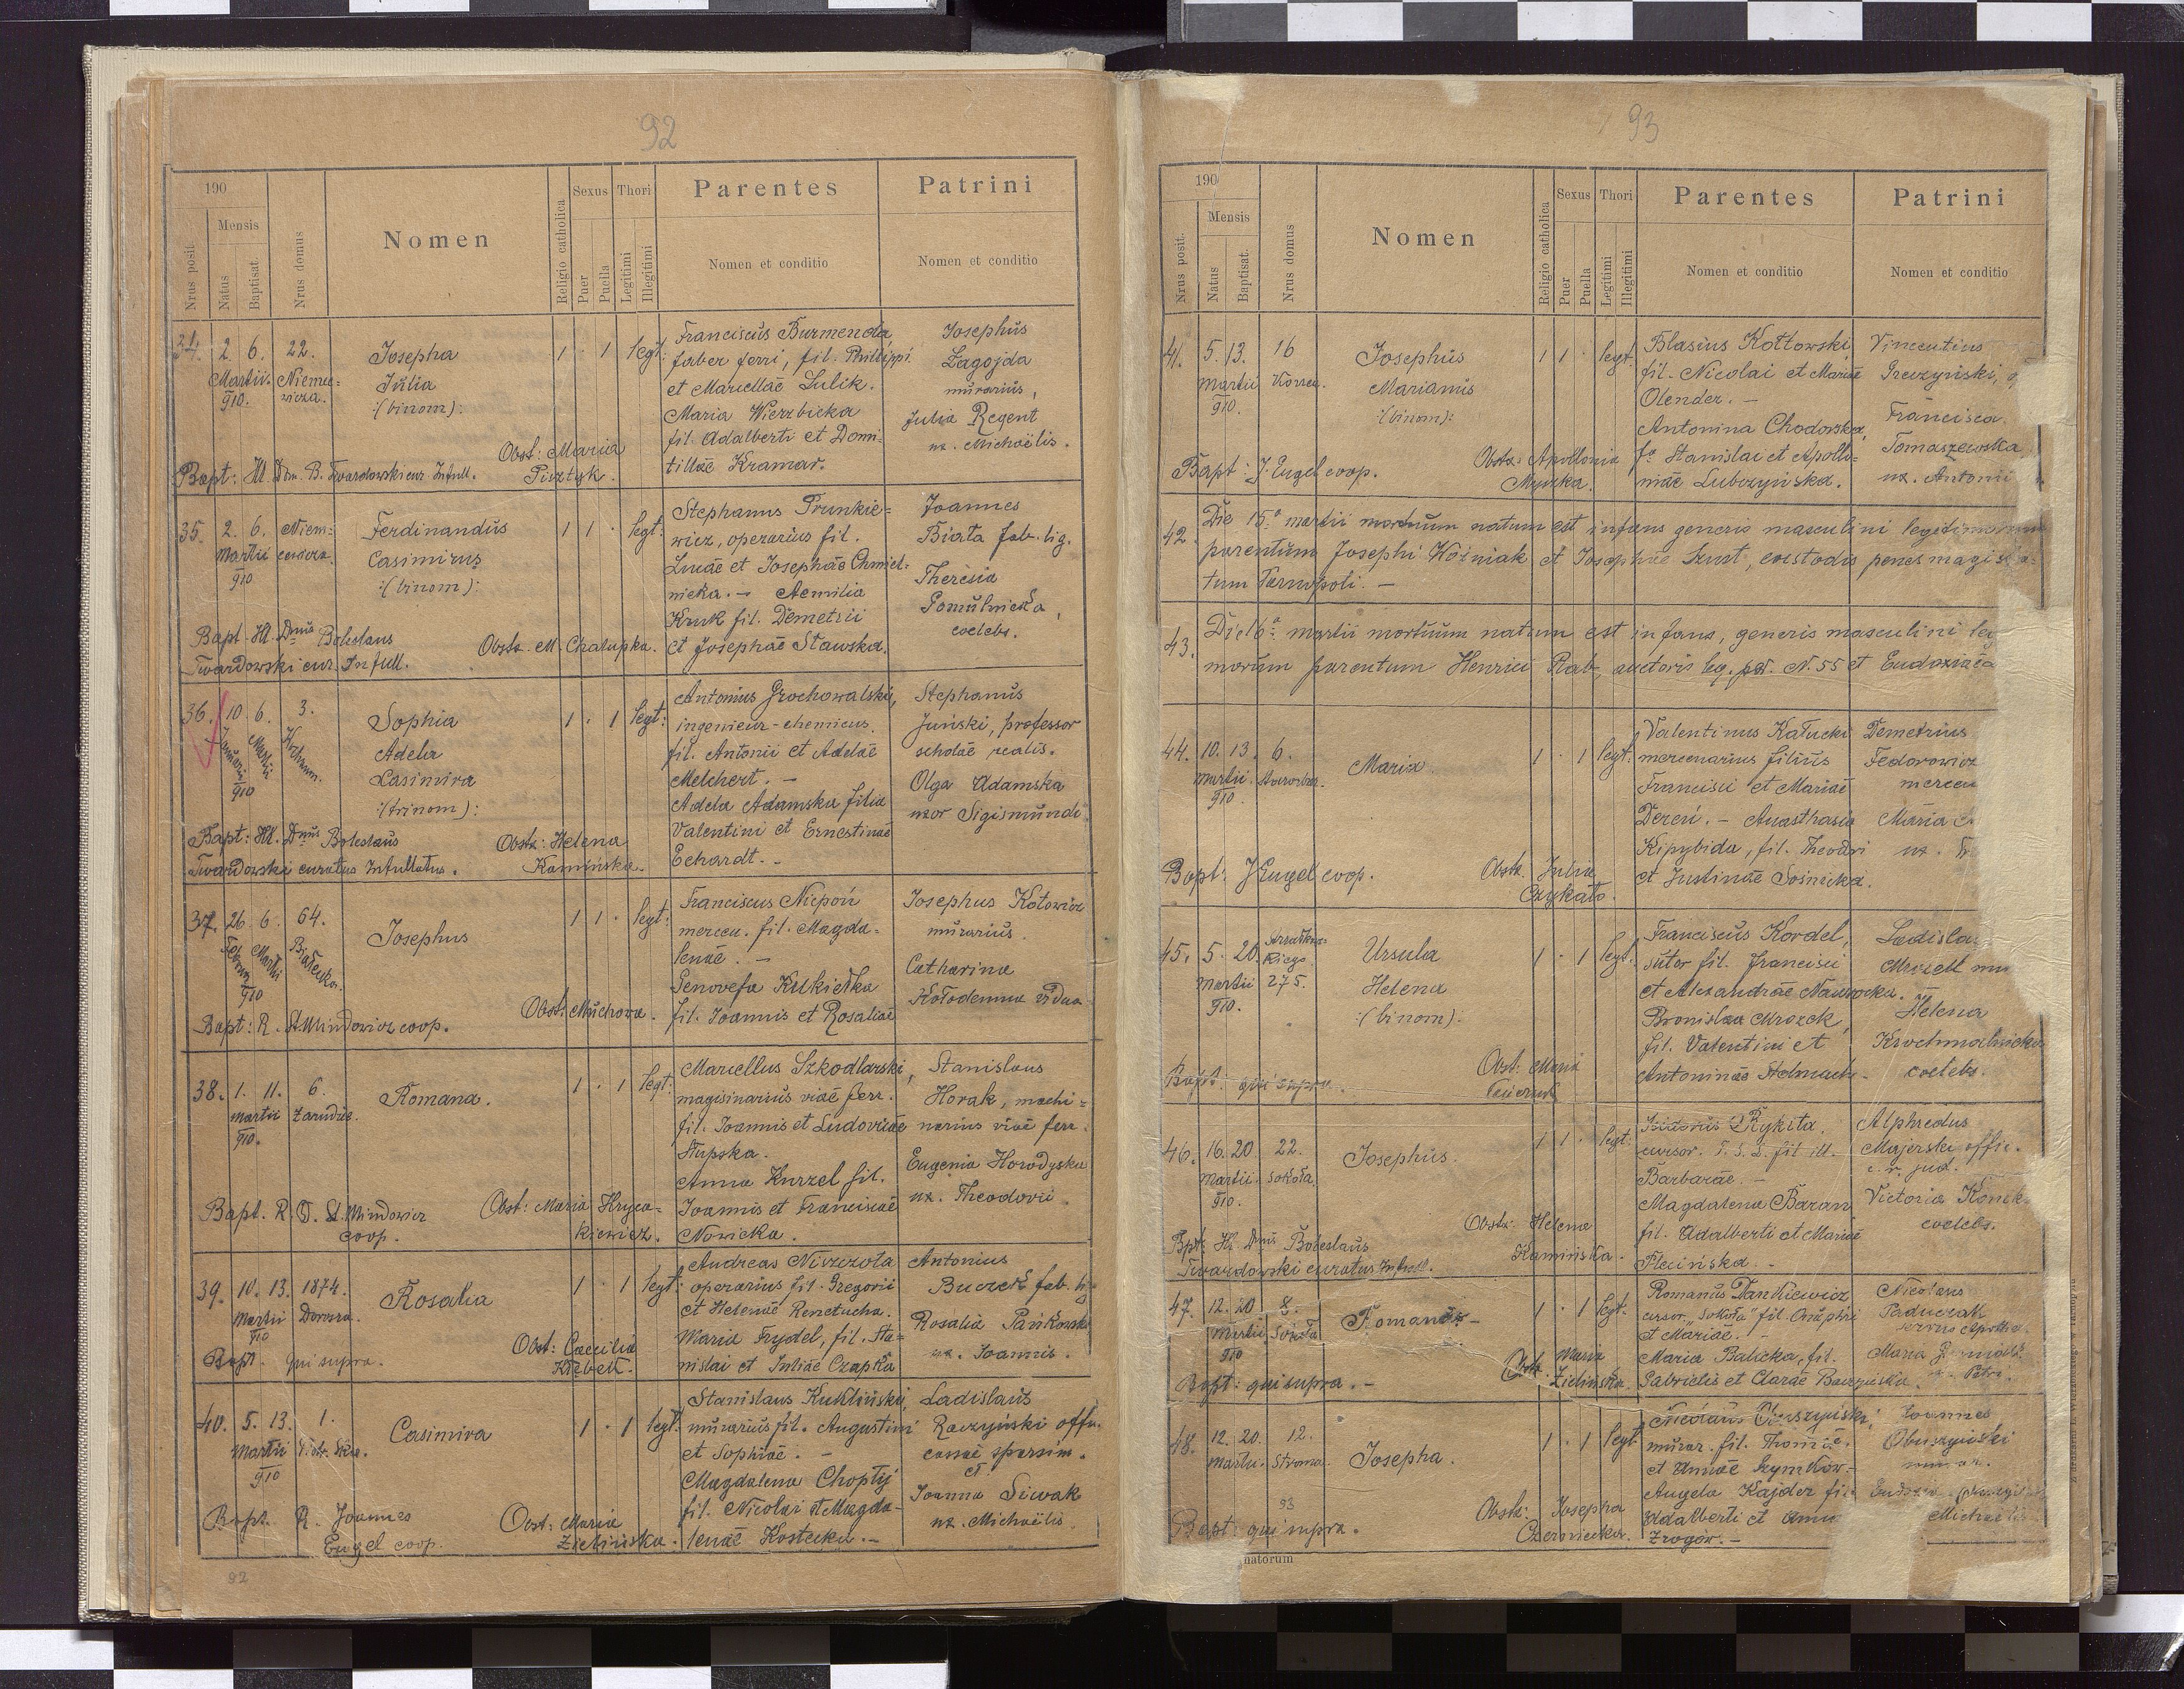 92
190
Nrus posit.
Mensis
Natus
Baptisat.
Nrus domus
Nomen
Religio catholica
Sexus
Puer
Puella
Thori
Legitimi
Illegitimi
Parentes
Nomen et conditio
Patrini
Nomen et conditio
34. 2. 6. 22. Josepha 1 · 1 legt: Franciscus Burmenda Josephus
faber ferri, fil. Philippi Zagojda
Martii Niemce- Julia et Marcellae Lulik. murarius,
910. wicza. :(binom): Maria Wierzbicka Julia Regent
Obst: Maria fil. Adalberti et Domi- ux. Michaëlis.
Bapt: Ill. Dom. B. Twardowski cur. Infull. Pisztyk. tillae Kramar.
35. 2. 6. Niem- Ferdinandus 1 1 · legt: Stephanus Prunkie- Joannes
Martii cewicza. Casimirus wicz, operarius fil. Biata fab. lig.
910 :(binom): Lucae et Josephae Chmiel- Theresia
nicka. – Aemilia Pomulnicka,
Bapt. Ill. Dnus Boleslaus Kruk fil. Demetrii coelebs.
Twardowski cur. Infull. Obstx. M. Chalupka. et Josephae Stawska.
36. 10 6. 3. Sophia 1 · 1 legt: Antonius Grochowalski, Stephanus
Januarii Martii Kochanow. Adela ingenieur-chemicus. Junski, professor
910 Casimira fil. Antonii et Adelae scholae realis.
:(trinom): Melchert. – Olga Adamska
Adela Adamska filia uxor Sigismundi
Bapt: Ill. Dnus Boleslaus Obstx: Helena Valentini et Ernestinae
Twardowski curatus Infullatus. Kamińska. Echardt. -
37. 26 6. 64. Josephus 1 1 · legt: Franciscus Niepoń Josephus Kotowicz
Febru. Martii mercen. fil. Magda- murarius.
910 lenae. – Catharina
Obst: Muchowa. Genovefa Kukiełka Kołodenna vidua
Bapt: R. St. Mindowicz coop. fil. Joannis et Rosaliae
38. 1. 11. 6. Romana. 1 · 1 legt: Marcellus Szkodlarski, Stanislaus
Martii Zarudzie. magisinarius viae ferr. Horak, machi-
910. fil. Joannis et Ludovicae narius viae ferr.
Stupska. Eugenia Horodyska
Anna Kurzel fil. ux. Theodori.
Bapt. R. D. St. Mindowicz Obst: Maria Hryca- Joannis et Franciscae
coop. kiewicz. Nowicka.
39. 10. 13. 1874. Rosalia 1 · 1 legt: Andreas Niszczota Antonius
Martii operarius fil. Gregorii Buczek fab. lig
910 et Helenae Renetucha. Rosalia Pańkowska
Obst: Caecilia Maria Frydel, fil. Sta- ux. Joannis.
Bapt. qui supra. Kiebert. nislai et Juliae Czapka
40. 5. 13. 1. Casimira 1 · 1 legt: Stanislaus Kukliński, Ladislaus
Martii murarius fil. Augustini Raczyński offic.
910 et Sophiae. – cassae sparsim.
Magdalena Choptij et
fil. Nicolai et Magda- Joanna Siwak
Bapt. R. Joannes Obst: Maria lenae Kostecka. – ux. Michaëlis.
Engel coop. Zielińska.
92
93
190
Nrus posit.
Mensis
Natus
Baptisat.
Nrus domus
Nomen
Religio catholica
Sexus
Puer
Puella
Thori
Legitimi
Illegitimi
Parentes
Nomen et conditio
Patrini
Nomen et conditio
41. 5. 13. 16 Josephus 1 1 · legt: Blasius Kottowski, Vincentius
Martii Korzen. Marianus fil. Nicolai et Mariae
910. :(binom): Olender. – Francisca
Antonina Chodorska, Tomaszewska
Obstx: Apollonia fa Stanislai et Apollo- ux. Antonii
Bapt: J. Engel coop. Myszka. niae Lubczyńska.
42. Die 15a martii mortuum natum est infans generis masculini legitimorum
parentum Josephi Woźniak et Josephae Szust, custodis penes magistra-
tum Tarnopoli. –
43. Die 16a martii mortuum natum est infans, generis masculini leg
morum parentum Henrici Rab, auctoris leg. N. 55 et Eudoxiae
44. 10. 13. 6. Maria. 1 · 1 legt: Valentinus Kałucki Demetrius
Martii mercenarius filius Fedorowicz
910. Francisci et Mariae mercen
Dereń. – Anasthasia Maria
Kipybida, fil. Theodori ux.
Bapt. J Engel coop. Obstx. Julia et Justinae Sośnicka.
Czykało.
45. 5. 20. Ursula 1 · 1 legt. Franciscus Kordel, Ladislau
Martii 275. Helena sutor fil. Francisci Mrozek mu
910. :(binom): et Alexandrae Nawrocka. Helena
Bronislaa Mrozek, Krochmalnicka
Obst: Maria fil. Valentini et coelebs.
Bapt: qui supra. Antoninae Stelmach.
46. 16. 20 22. Josephus. 1 1 · legt: Isidorus Rykita. Alphredus
Martii Sokoła. cursor. T. S. L. fil ill. Majerski offic.
910. Barbarae. – c. r. jud.
Magdalena Baran Victoria Konek
Bpt: Ill. Dnus Boleslaus Obstx: Helena fil. Adalberti et Mariae coelebs.
Twardowski curatus Infull. Kamińska. Flecińska. -
47. 12. 20 2. Romana – 1 · 1 legt: Romanus Dankiewicz Nicolaus
Martii Sokoła cursor „Sokoła" fil. Onuphri Paduczak
910 et Mariae. – servus Apoth.
Obstx. Maria Maria Balicka, fil. Maria
Bapt: qui supra. – Zielińska. Gabrielis et Clarae Petri.
48. 12. 20. 12. Josepha. 1 · 1 legt Nicolaus Obuszyński, Joannes
Martii. Stroma. murar. fil. Thomae. Obuszyński
et Annae Szymkow- murar.
Angela Kajder fil
93 Obstx: Josepha Adalberti et Anna Michaelis
Bapt: qui supra. Czerniecka. Zrogów. –
natorum